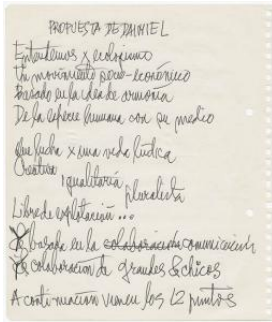 PROPUESTA DE DANIEL
Entendemos x ecologismo
Un movimiento socio-económico
Basado en la idea de armonía
De la especie humana con su medio
Que lucha x una vida lúdica
Creativa
igualitaria
pluralista
Libre de explotación...
Y basada en la colaboración comunicación
Y colaboración de grandes & chicos
A continuación vienen los 12 puntos